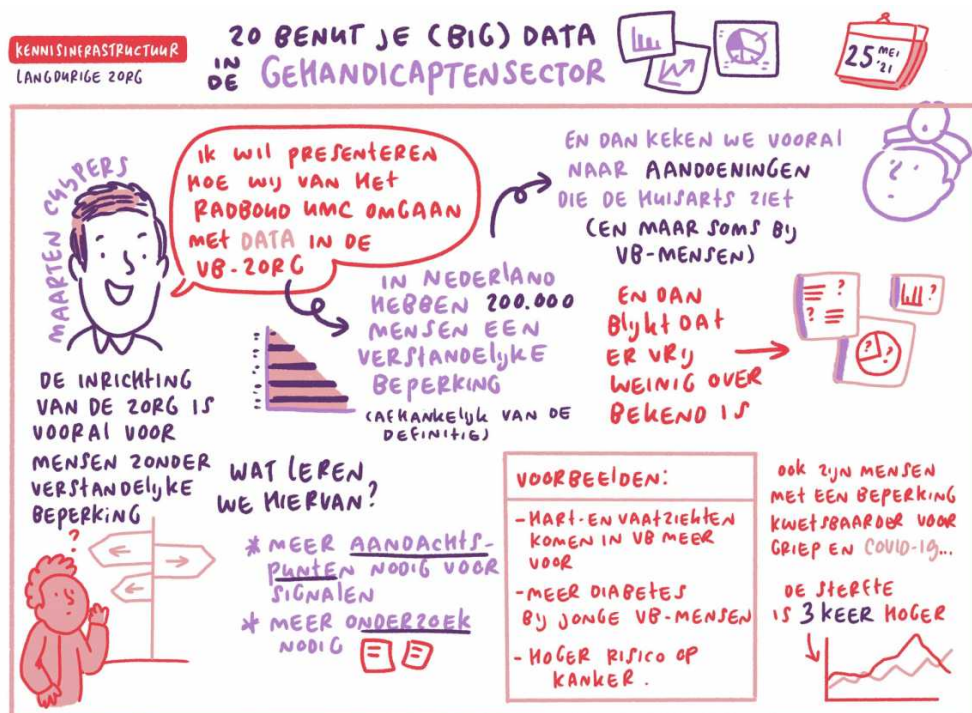 KENNISINFRASTRUCTUUR
LANGDURIGE ZORG
ZO BENUT JE (BIG) DATA
IN DE GEHANDICAPTENSECTOR
25 MEI '21
MAARTEN CUYPERS
IK WIL PRESENTEREN
HOE WIJ VAN HET
RADBOUD UMC OMGAAN
MET DATA IN DE
VB-ZORG
EN DAN KEKEN WE VOORAL
NAAR AANDOENINGEN
DIE DE HUISARTS ZIET
(EN MAAR SOMS BIJ
VB-MENSEN)
IN NEDERLAND
HEBBEN 200.000
MENSEN EEN
VERSTANDELIJKE
BEPERKING
(AFHANKELIJK VAN DE
DEFINITIE)
EN DAN
BLIJKT DAT
ER VRIJ
WEINIG OVER
BEKEND IS
?
?
?
? ?
?
DE INRICHTING
VAN DE ZORG IS
VOORAL VOOR
MENSEN ZONDER
VERSTANDELIJKE
BEPERKING
?
WAT LEREN
WE HIERVAN?
* MEER AANDACHTS-
PUNTEN NODIG VOOR
SIGNALEN
* MEER ONDERZOEK
NODIG
VOORBEELDEN:
- HART- EN VAATZIEKTEN
KOMEN IN VB MEER
VOOR
- MEER DIABETES
BIJ JONGE VB-MENSEN
- HOGER RISICO OP
KANKER.
OOK ZIJN MENSEN
MET EEN BEPERKING
KWETSBAARDER VOOR
GRIEP EN COVID-19...
DE STERFTE
IS 3 KEER HOGER